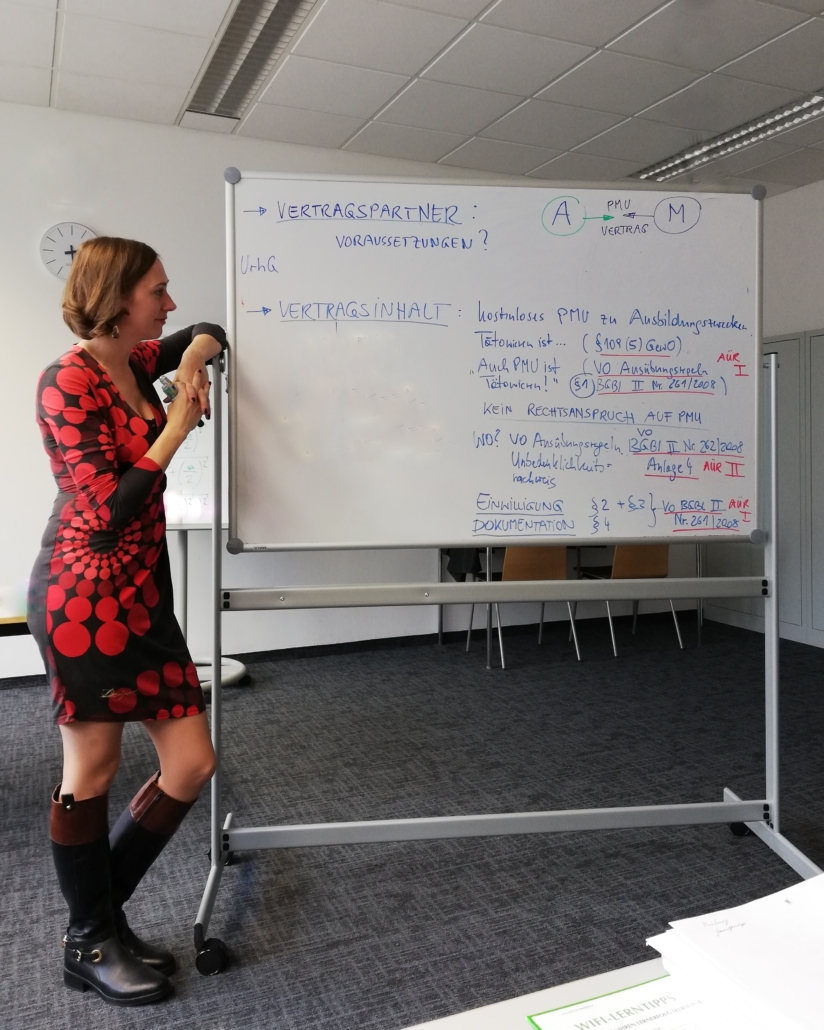 → VERTRAGSPARTNER :
VORAUSSETZUNGEN?
A → PMU ← M
VERTRAG
UrhG
→ VERTRAGSINHALT : kostenloses PMU zu Ausbildungszwecken
Tätowieren ist... (§109 (5) GewO)
„Auch PMU ist (VO Ausübungsregeln AÜR I
Tätowieren!" §1) BGBl II Nr. 261/2008)
KEIN RECHTSANSPRUCH AUF PMU
WO? VO Ausübungsregeln, VO BGBl II Nr. 262/2008
Unbedenklichkeits- Anlage 4 AÜR II
nachweis
EINWILLIGUNG §2 + §3 } VO BGBl II AÜR I
DOKUMENTATION §4 Nr. 261/2008
WIFI-LERNTIPPS